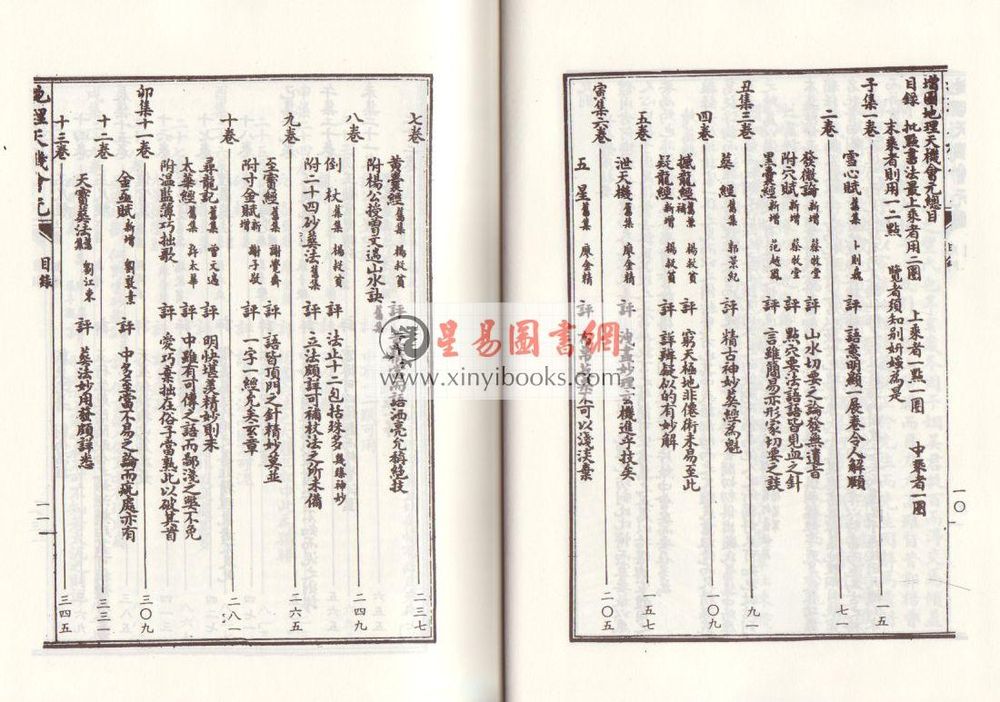 增圖地理天機會元總目
目錄 批點書法最上乘者用二圈 上乘者一圈 中乘者一圈
末乘者則用一二點 覽者須知別妍媸為是
子集一卷 一五
雪心賦 舊集 卜則巍 評 語意明顯一展卷令人解頤
二卷 七一
發微論 新增 蔡牧堂 評 山水切要之論發無遺旨
附穴賦 新增 蔡牧堂 評 點穴要法語語皆見血之針
黑囊經 新增 范越鳳 評 言雖簡易亦形家切要之談
丑集三卷 九一
葬 經 舊集 郭景純 評 精古神妙葬經為魁
四卷 一〇九
撼龍經 舊集補 楊救貧 評 窮天極地非僊術未易至此
疑龍經 新增 楊救貧 評 詳辨疑似的有妙解
五卷 一五七
泄天機 舊集 廖金精 評 洩盡妙理玄機進乎技矣
寅集六卷 二〇五
五 星 舊集 廖金精 評 不可以淺淡棄
一〇
七卷 二三七
黃囊經 舊集 楊救貧 評 語洒亮允稱絕技
附楊公授曾文遄山水訣 舊集
八卷 二四九
倒 杖 舊集 楊救貧 評 法止十二包括殊多 葬臻神妙
附二十四砂葬法 舊集 評 立法頗詳可補杖法之所未備
九卷 二六五
至寶經 舊集 謝覺齋 評 語皆頂門之針精妙莫並
附寸金賦 新增 謝子敬 評 一字一經允矣宏章
十卷 二八一
尋龍記 舊集 曾文遄 評 明快堪美精妙則未
太華經 舊集 許太華 評 中雖有可傳之語而鄙淺之弊不免
附溫藍薄巧拙歌 評 愛巧棄拙在俗子當熟此以破其盲
卯集十一卷 三〇九
金函賦 新增 劉敦素 評 中多至當不易之論而疵處亦有
十二卷 三三一
天寶葬法 舊集 劉江東 評 葬法妙用發頗詳悉
十三卷 三四五
地理天機會元 目錄 一一
星易圖書網
www.xinyibooks.com